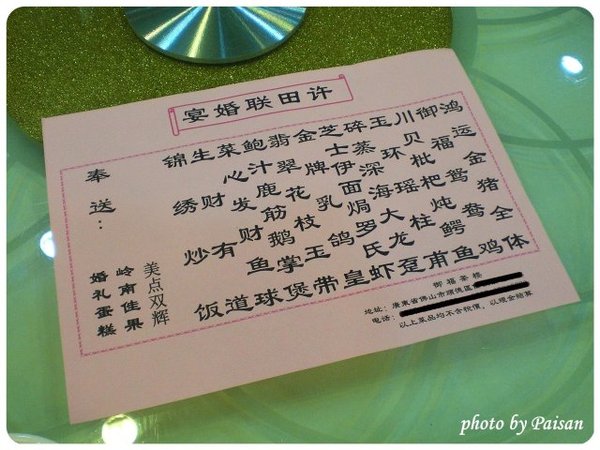 许田联婚宴
鸿运金猪全体
御福鸳鸯鸡
川贝枇杷炖鳄鱼
玉环瑶柱甫
碎蒸深海大龙趸
芝士伊面焗罗氏虾
金牌乳鸽皇
翡翠花枝玉带
鲍汁鹿筋鹅掌煲
菜心发财鱼球
生财有道
锦绣炒饭
奉送：
美点双辉
岭南佳果
婚礼蛋糕
地址：廣東省佛山市順德區
电话：
以上菜品均不含税價，以现金结算
photo by Paisan